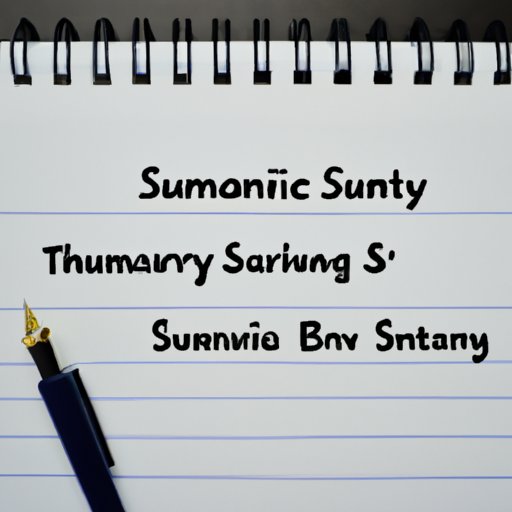 Sumonïic Sunty
Thumaury Sariwng S'
Surnvio Bnv Sntany